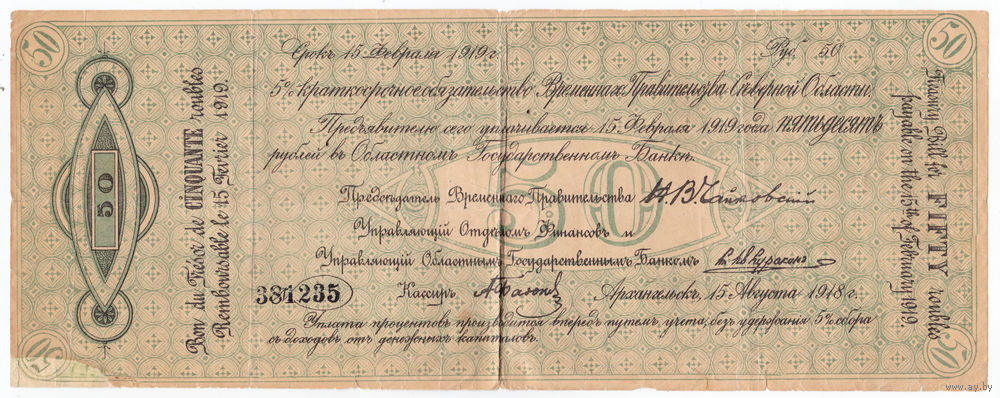 50
50
Срокъ 15 Февраля 1919 г. Руб. 50
5% краткосрочное обязательство Временнаго Правительства Сѣверной Области.
Предъявителю сего уплачивается 15 Февраля 1919 года пятьдесятъ
рублей въ Областномъ Государственномъ Банкѣ.
Предсѣдатель Временнаго Правительства Н.В. Чайковскій
Управляющій Отдѣломъ Финансовъ и
Управляющій Областнымъ Государственнымъ Банкомъ
381235 Кассиръ Архангельскъ, 15 Августа 1918 г.
Уплата процентовъ производится впередъ путемъ учета, безъ удержания 5% сбора
съ доходовъ отъ денежныхъ капиталовъ.
Bon du Trésor de CINQUANTE roubles
Remboursable le 15 Fevrier 1919.
Treasury Bill for FIFTY roubles
payable on the 15th of February 1919.
50
50
50
50
www.ay.by